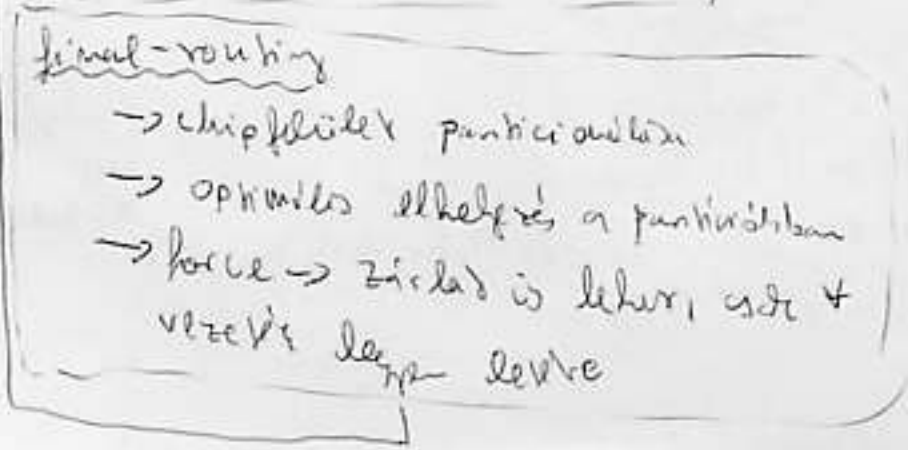 final-routing
→ chipfelület particionálása
→ optimális elhelyezés a partíciókban
→ force → zárlat is lehet, csak ∀
vezeték legyen letéve